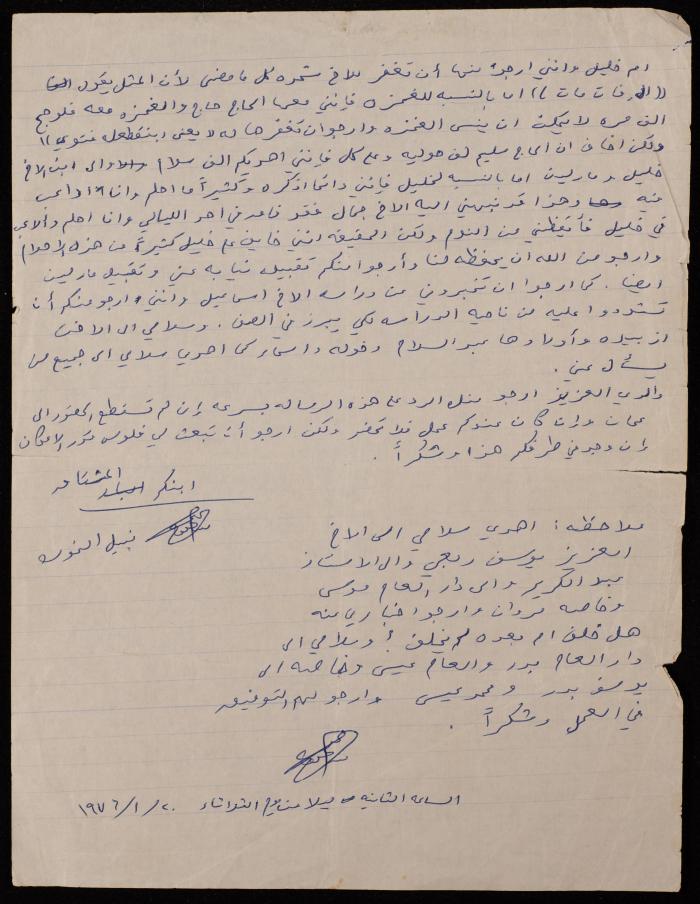 ام خليل وانني ارجو منها أن تغفر للاخ شحده كل ما مضى لأن المثل يقول
(( الي فات مات )) اما بالنسبه للغمزه فإنني معها الحاج حاج والغمزه معه فلو حج
الف مره لا يمكن ان ينسى الغمزه وارجو ان تغفرها له لا يعني ابتقطعله فتوى ))
ولكن اخاف ان الحاج سليم لف حواليه وعلى كل فإنني اهديكم الف سلام والى ابن الاخ
خليل ومارلين اما بالنسبه لخليل فإنني دائما اذكره وكثيراً ما احلم وانا اداعب
فيه وهذا قد نبهني اليه الاخ جمال فقد قام في احد الليالي وانا احلم وألاعب
في خليل فأيقظني من النوم ولكن الحقيقه انني خايف على خليل كثيراً من هذه الاحلام
وارجو من الله أن يحفظه لنا وأرجو منكم تقبيله نيابه عني وتقبيل مارلين
ايضا . كما ارجو ان تخبروني عن دراسه الاخ اسماعيل وانني ارجو منكم أن
تشددوا عليه من ناحيه الدراسه لكي يبرز في الصف . وسلامي الى الاخت
ام بيده وأولادها عبد السلام وخوله واسماء كما اهدي سلامي الى جميع من
يسأل عني .
والدي العزيز ارجو منك الرد على هذه الرساله بسرعه إن لم تستطع الحضور الى
عمان وإن كان عندكم عمل فلا تحضر ولكن ارجو أن تبعث لي فلوس قدر الامكان
إن وجد في طرفكم هذا وشكراً .
ابنكم المشتاق
نبيل
ملاحظه : اهدي سلامي الى الاخ
العزيز يوسف ربحي والى الاستاذ
عبد الكريم والى دار العم موسى
وخاصه مروان وارجو اخباري عنه
هل خلف ام بعده لم يخلف ؟ وسلامي الى
دار العم بدر والعم عيسى وخاصه الى
يوسف بدر و محمد عيسى وارجو لهم التوفيق
في العمل وشكراً .
الساعه الثانيه ليلا من يوم الثلاثاء ٢٠/١/١٩٧٦